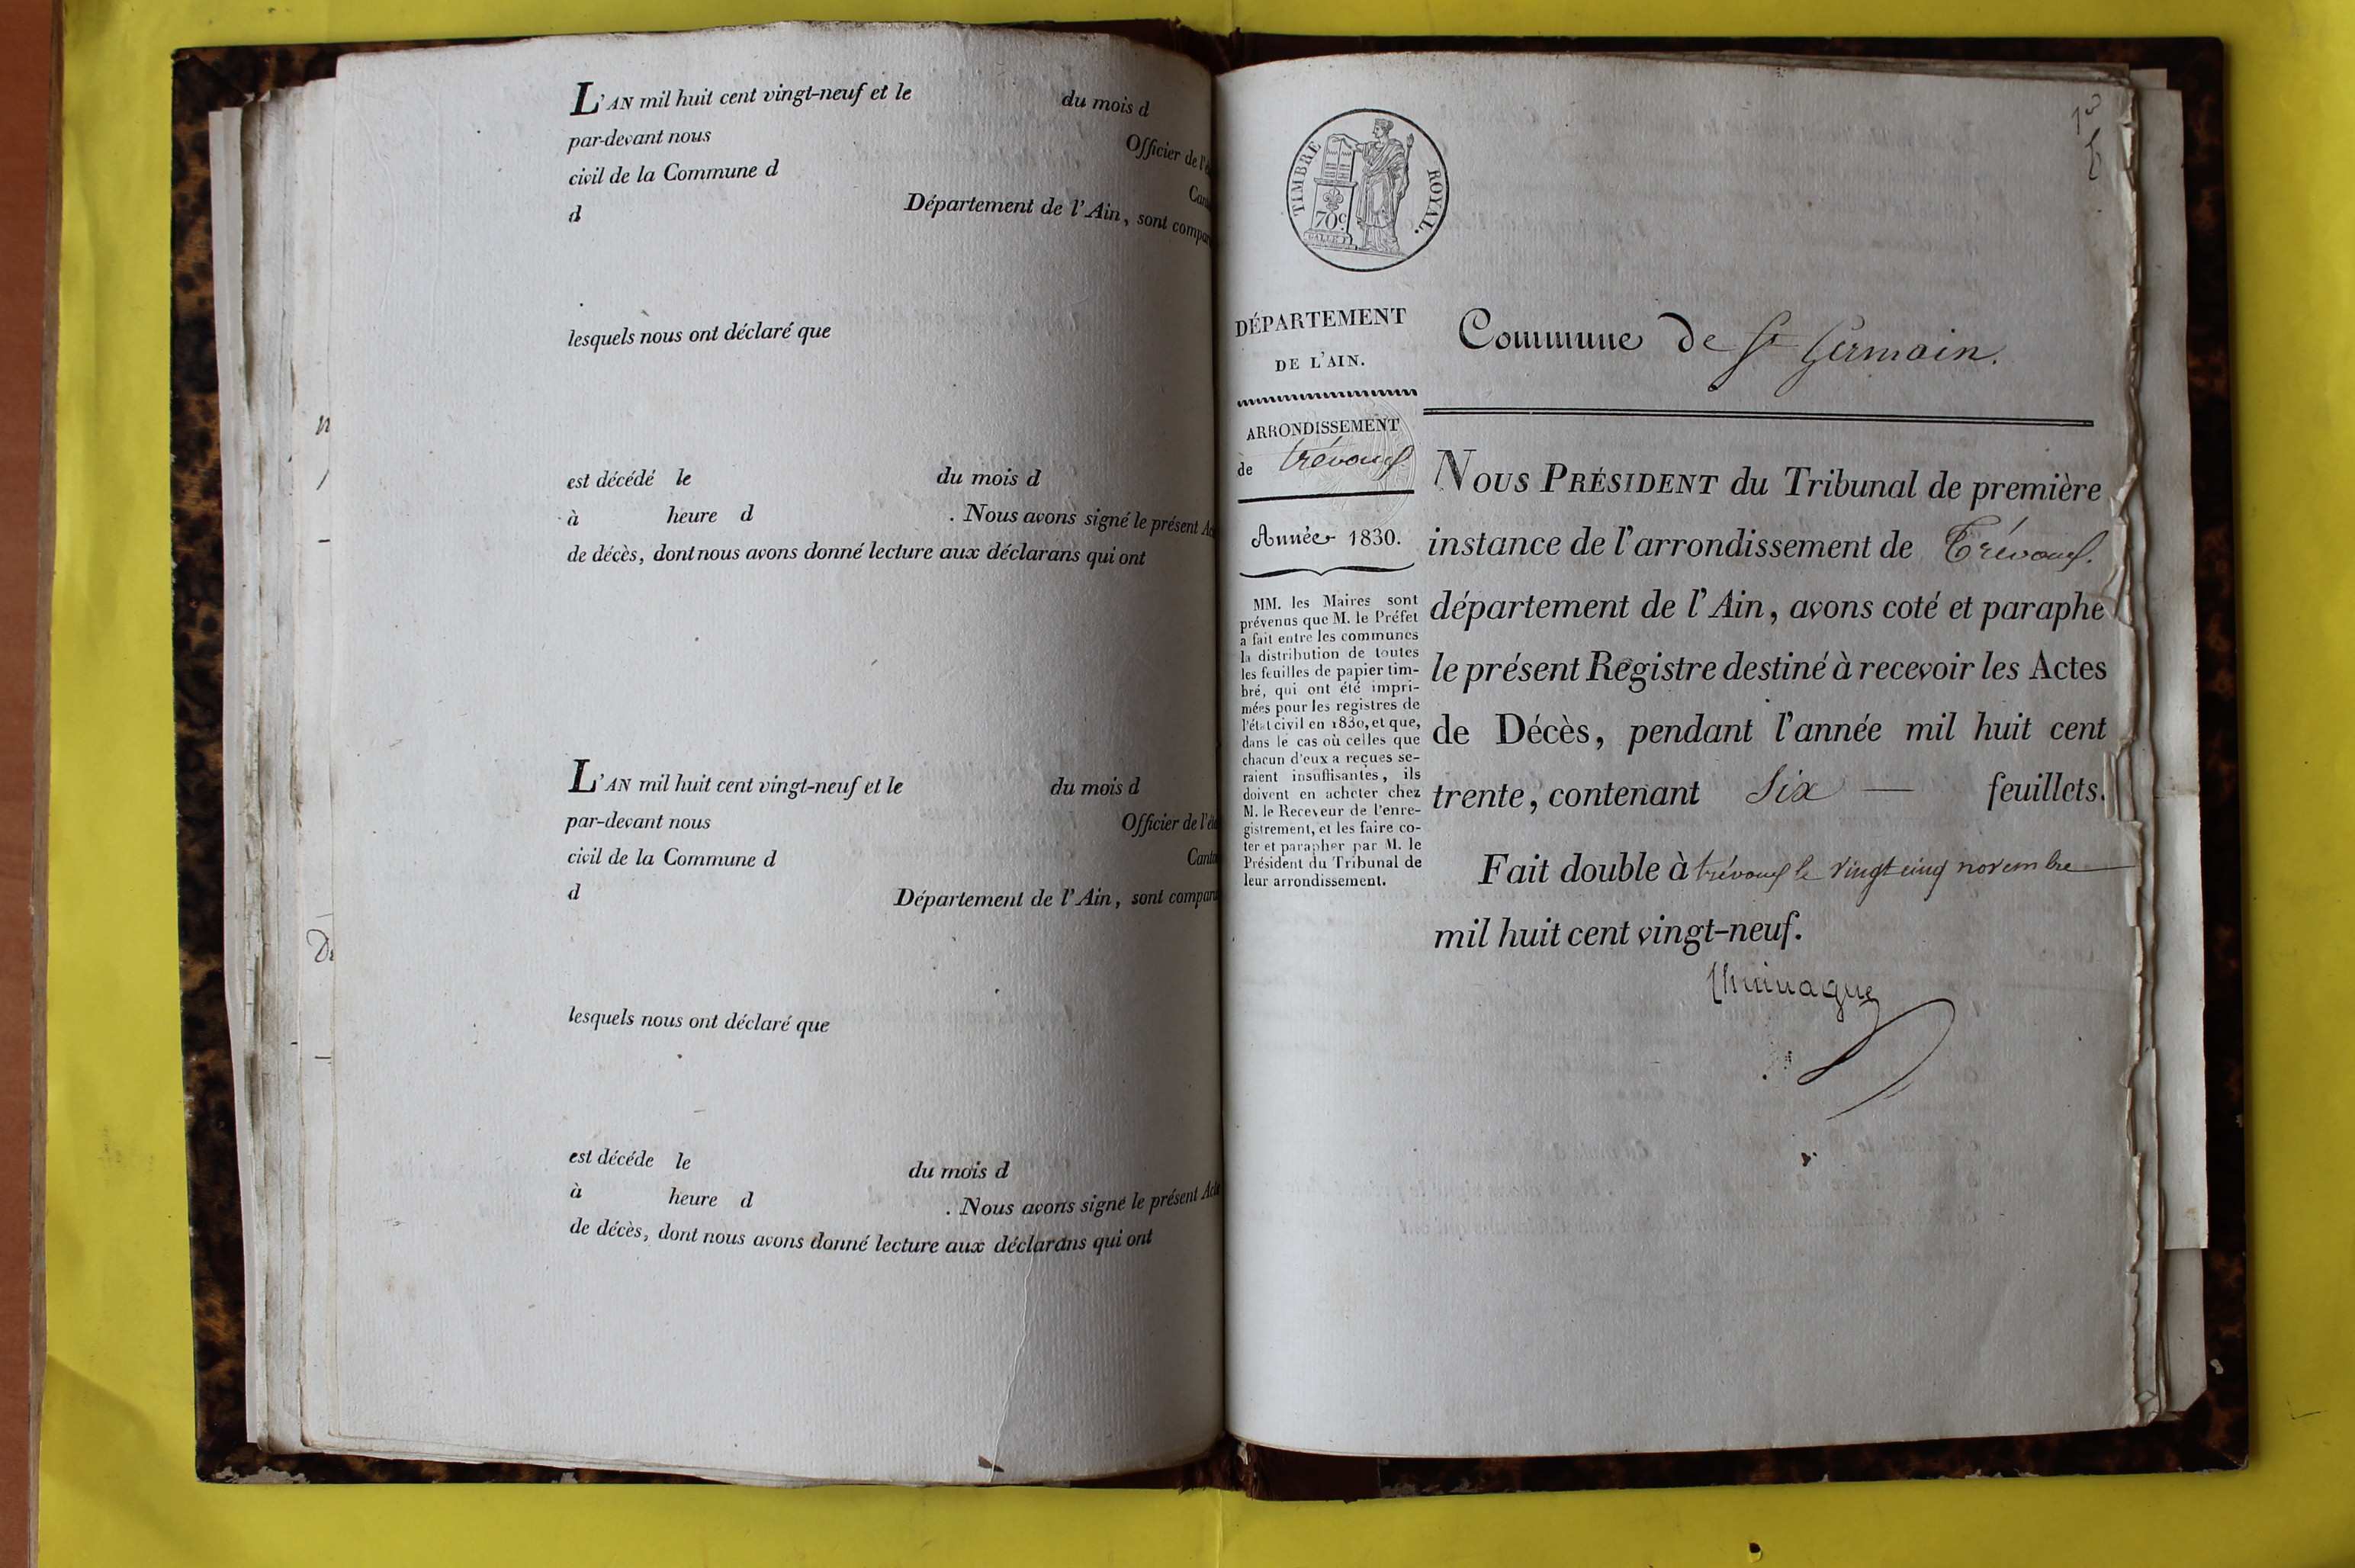 L'AN mil huit cent vingt-neuf et le du mois d
par-devant nous Officier de l'é
civil de la Commune d Can
d Département de l'Ain, sont compar
lesquels nous ont déclaré que
est décédé le du mois d
à heure d . Nous avons signé le présent Ac
de décès, dont nous avons donné lecture aux déclarans qui ont
L'AN mil huit cent vingt-neuf et le du mois d
par-devant nous Officier de l'é
civil de la Commune d Canto
d Département de l'Ain, sont compar
lesquels nous ont déclaré que
est décéde le du mois d
à heure d . Nous avons signé le présent Act
de décès, dont nous avons donné lecture aux déclarans qui ont
TIMBRE ROYAL.
70c
DÉPARTEMENT
DE L'AIN.
ARRONDISSEMENT
de trévoux
Année 1830.
MM. les Maires sont
prévenus que M. le Préfet
a fait entre les communes
la distribution de toutes
les feuilles de papier tim-
bré, qui ont été impri-
mées pour les registres de
l'état civil en 1830, et que,
dans le cas où celles que
chacun d'eux a reçues se-
raient insuffisantes, ils
doivent en acheter chez
M. le Receveur de l'enre-
gistrement, et les faire co-
ter et parapher par M. le
Président du Tribunal de
leur arrondissement.
Commune de St Germain.
NOUS PRÉSIDENT du Tribunal de première
instance de l'arrondissement de Trévoux.
département de l'Ain, avons coté et paraphe
le présent Registre destiné à recevoir les Actes
de Décès, pendant l'année mil huit cent
trente, contenant Six — feuillets.
Fait double à trévoux le vingt cinq novembre
mil huit cent vingt-neuf.